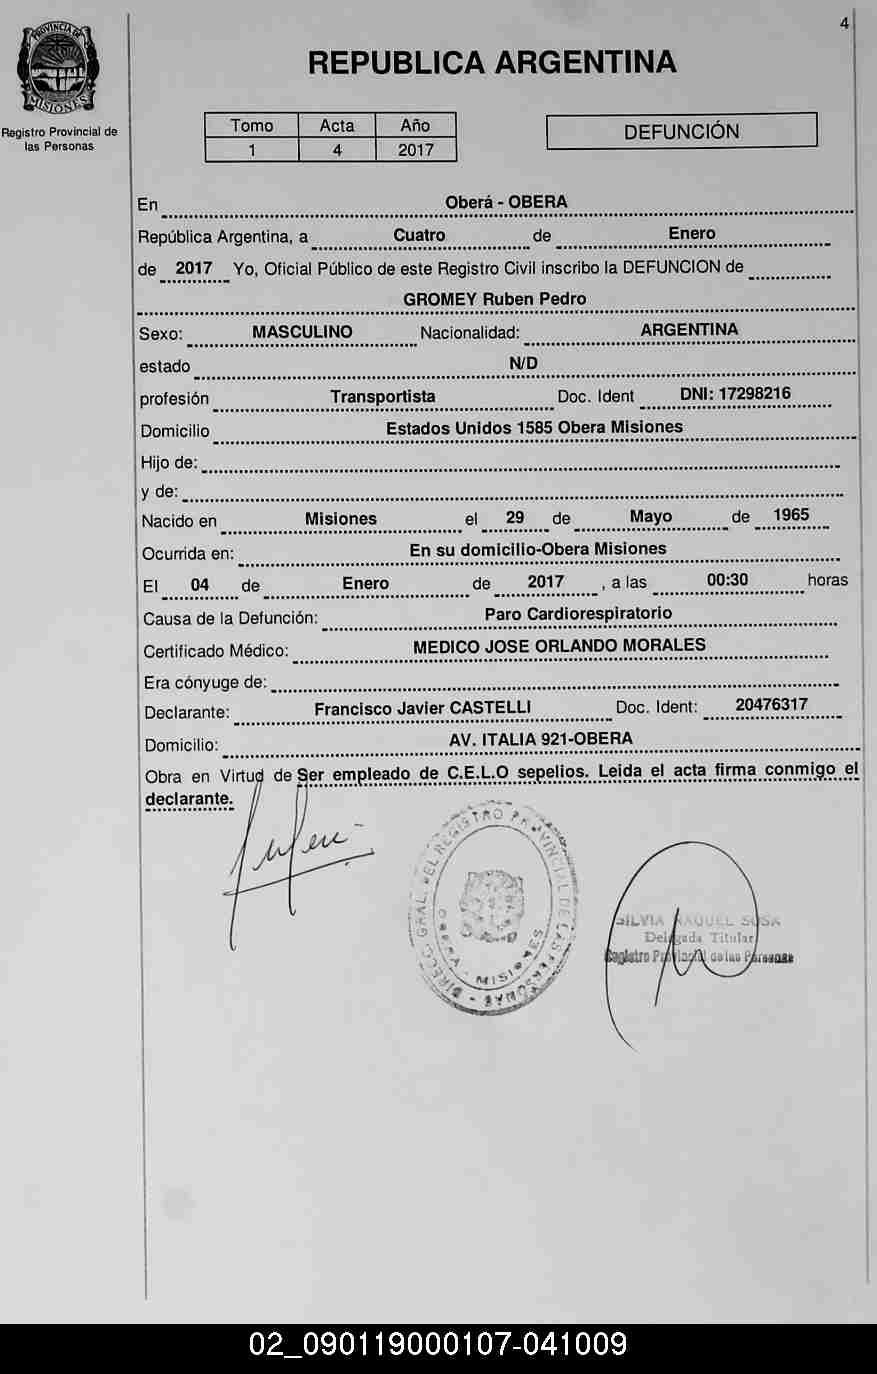 4
PROVINCIA DE
MISIONES
Registro Provincial de
las Personas
REPUBLICA ARGENTINA
Tomo Acta Año
1 4 2017
DEFUNCIÓN
En Oberá - OBERA
República Argentina, a Cuatro de Enero
de 2017 Yo, Oficial Público de este Registro Civil inscribo la DEFUNCION de
GROMEY Ruben Pedro
Sexo: MASCULINO Nacionalidad: ARGENTINA
estado N/D
profesión Transportista Doc. Ident DNI: 17298216
Domicilio Estados Unidos 1585 Obera Misiones
Hijo de:
y de:
Nacido en Misiones el 29 de Mayo de 1965
Ocurrida en: En su domicilio-Obera Misiones
El 04 de Enero de 2017 , a las 00:30 horas
Causa de la Defunción: Paro Cardiorespiratorio
Certificado Médico: MEDICO JOSE ORLANDO MORALES
Era cónyuge de:
Declarante: Francisco Javier CASTELLI Doc. Ident: 20476317
Domicilio: AV. ITALIA 921-OBERA
Obra en Virtud de Ser empleado de C.E.L.O sepelios. Leida el acta firma conmigo el
declarante.
DIRECC. GRAL. DEL REGISTRO PROVINCIAL DE LAS PERSONAS
OBERA - MISIONES
SILVIA RAQUEL SOSA
Delegada Titular
Registro Provincial de las Personas
02_090119000107-041009